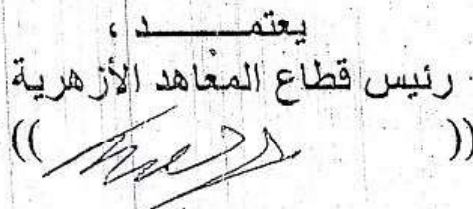 يعتمــــد ،
رئيس قطاع المعاهد الأزهرية
(( ))